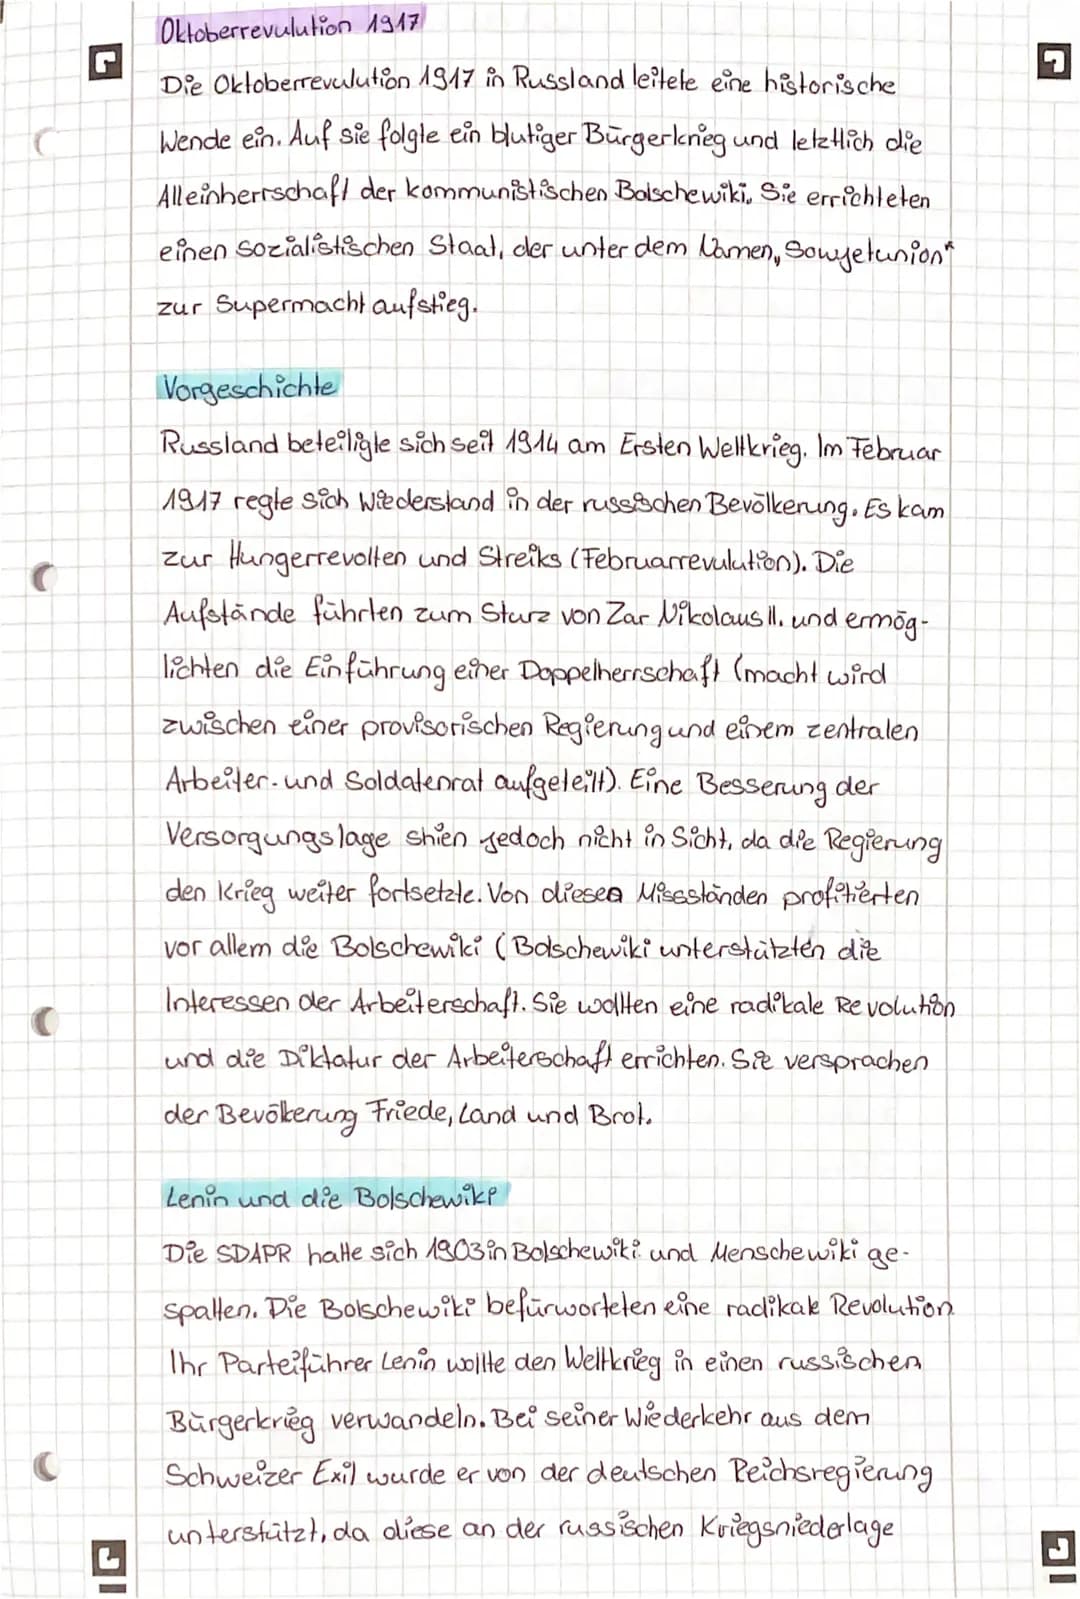 Oktoberrevulution 1917
Die Oktoberrevulution 1917 in Russland leitete eine historische
Wende ein. Auf sie folgte ein blutiger Bürgerkrieg und letztlich die
Alleinherrschaft der kommunistischen Bolschewiki. Sie errichteten
einen sozialistischen Staat, der unter dem Namen „Sowjetunion“
zur Supermacht aufstieg.
Vorgeschichte
Russland beteiligte sich seit 1914 am Ersten Weltkrieg. Im Februar
1917 regte sich Wiederstand in der russischen Bevölkerung. Es kam
zur Hungerrevolten und Streiks (Februarrevulution). Die
Aufstände führten zum Sturz von Zar Nikolaus II. und ermög-
lichten die Einführung einer Doppelherrschaft (macht wird
zwischen einer provisorischen Regierung und einem zentralen
Arbeiter- und Soldatenrat aufgeteilt). Eine Besserung der
Versorgungslage shien jedoch nicht in Sicht, da die Regierung
den Krieg weiter fortsetzte. Von diesen Missständen profitierten
vor allem die Bolschewiki (Bolschewiki unterstützten die
Interessen der Arbeiterschaft. Sie wollten eine radikale Revolution
und die Diktatur der Arbeiterschaft errichten. Sie versprachen
der Bevölkerung Friede, Land und Brot.
Lenin und die Bolschewiki
Die SDAPR hatte sich 1903 in Bolschewiki und Menschewiki ge-
spalten. Die Bolschewiki befürworteten eine radikale Revolution.
Ihr Parteiführer Lenin wollte den Weltkrieg in einen russischen
Bürgerkrieg verwandeln. Bei seiner Wiederkehr aus dem
Schweizer Exil wurde er von der deutschen Reichsregierung
unterstützt, da diese an der russischen Kriegsniederlage